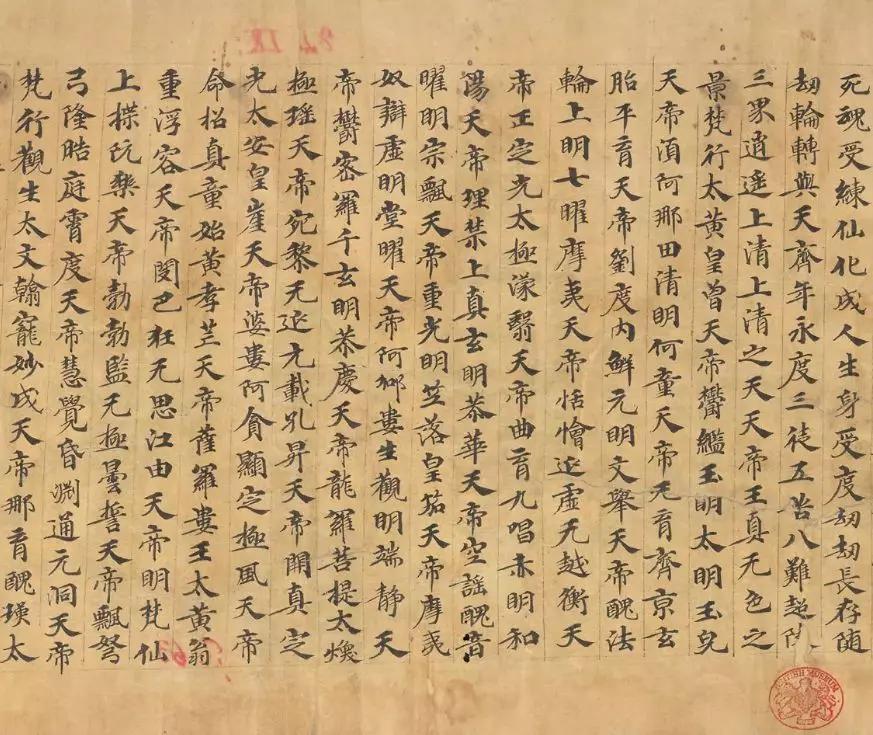 死魂受練仙化成人生身受度劫劫長存随
劫輪轉與天齊年永度三徒五苦八難超
三界逍遥上清上清之天天帝王真无色之
景梵行太黄皇曽天帝欝鑑玉明太明玉完
天帝湏阿那田清明何童天帝元育齊京玄
胎平育天帝劉度内鮮元明文舉天帝醜法
輪上明七曜摩夷天帝恬憺延虚无越衡天
帝正定光太極濛翳天帝曲育九唱赤明和
陽天帝理禁上真玄明恭華天帝空謡醜音
曜明宗飄天帝重光明竺落皇笳天帝摩夷
奴辯虚明堂曜天帝阿䣧婁生觀明端静天
帝欝密羅千玄明恭慶天帝龍羅菩提太煥
極瑶天帝宛黎无延元載孔昇天帝開真定
光太安皇崖天帝婆婁阿貪顯定極風天帝
命招真童始黄孝芒天帝薩羅婁王太黄翁
重浮容天帝閔巴狂无思江由天帝明梵仙
上揲阮樂天帝勃勃監无極曇誓天帝飄弩
弓隆晧庭霄度天帝慧覺昏淵通元洞天帝
梵行觀生太文翰寵妙成天帝那育醜瑛太
BRITISH MUSEUM